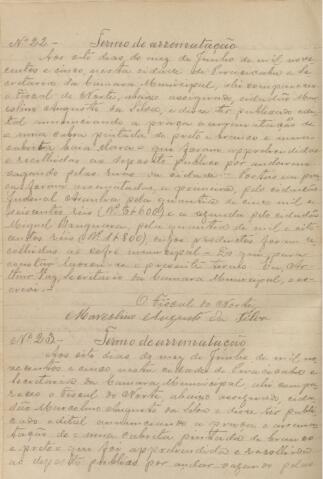 Nº 22 - Termo de arrematação
Aos sete dias do mez de Junho de mil nove
centos e cinco, nesta cidade de Piracicaba e Se
cretaria da Camara Municipal, ahi compareceu
o fiscal do Norte, abaixo assignado, cidadão Mar
celino Augusto da Silva, e disse ter publicado e
dital annunciando a praça e arrematação de
uma cabra pintada de preto e branco e uma
cabrita baia clara - que foram apprehendidas
e recolhidas ao deposito publico por andarem
vagando pelas ruas da cidade - Postas em pra
ça foram arrematadas, a primeira, pelo cidadão
pela quantia de cinco mil e
seiscentos réis (Rs. 5$600) e a segunda pelo cidadão
Miguel pela quantia de mil e oito
centos réis (Rs. 1$800), cujos productos foram re
colhidos ao cofre municipal - Do que para
constar lavrou-se o presente termo. Eu,
Secretario da Camara Municipal, o es
crevi -
O Fiscal do Norte,
Marcolino Augusto da Silva
Nº 23 - Termo de arrematação
Aos sete dias do mez de Junho de mil no
vecentos e cinco, nesta cidade de Piracicaba e
Secretaria da Camara Municipal, ahi compa
receu o fiscal do Norte, abaixo assignado, cida
dão Marcolino Augusto da Silva e disse ter publi
cado edital annunciando a praça e arrema
tação de uma cabrita pintada de branco
e preto que foi apprehendida e recolhida
ao deposito publico por andar vagando pelas